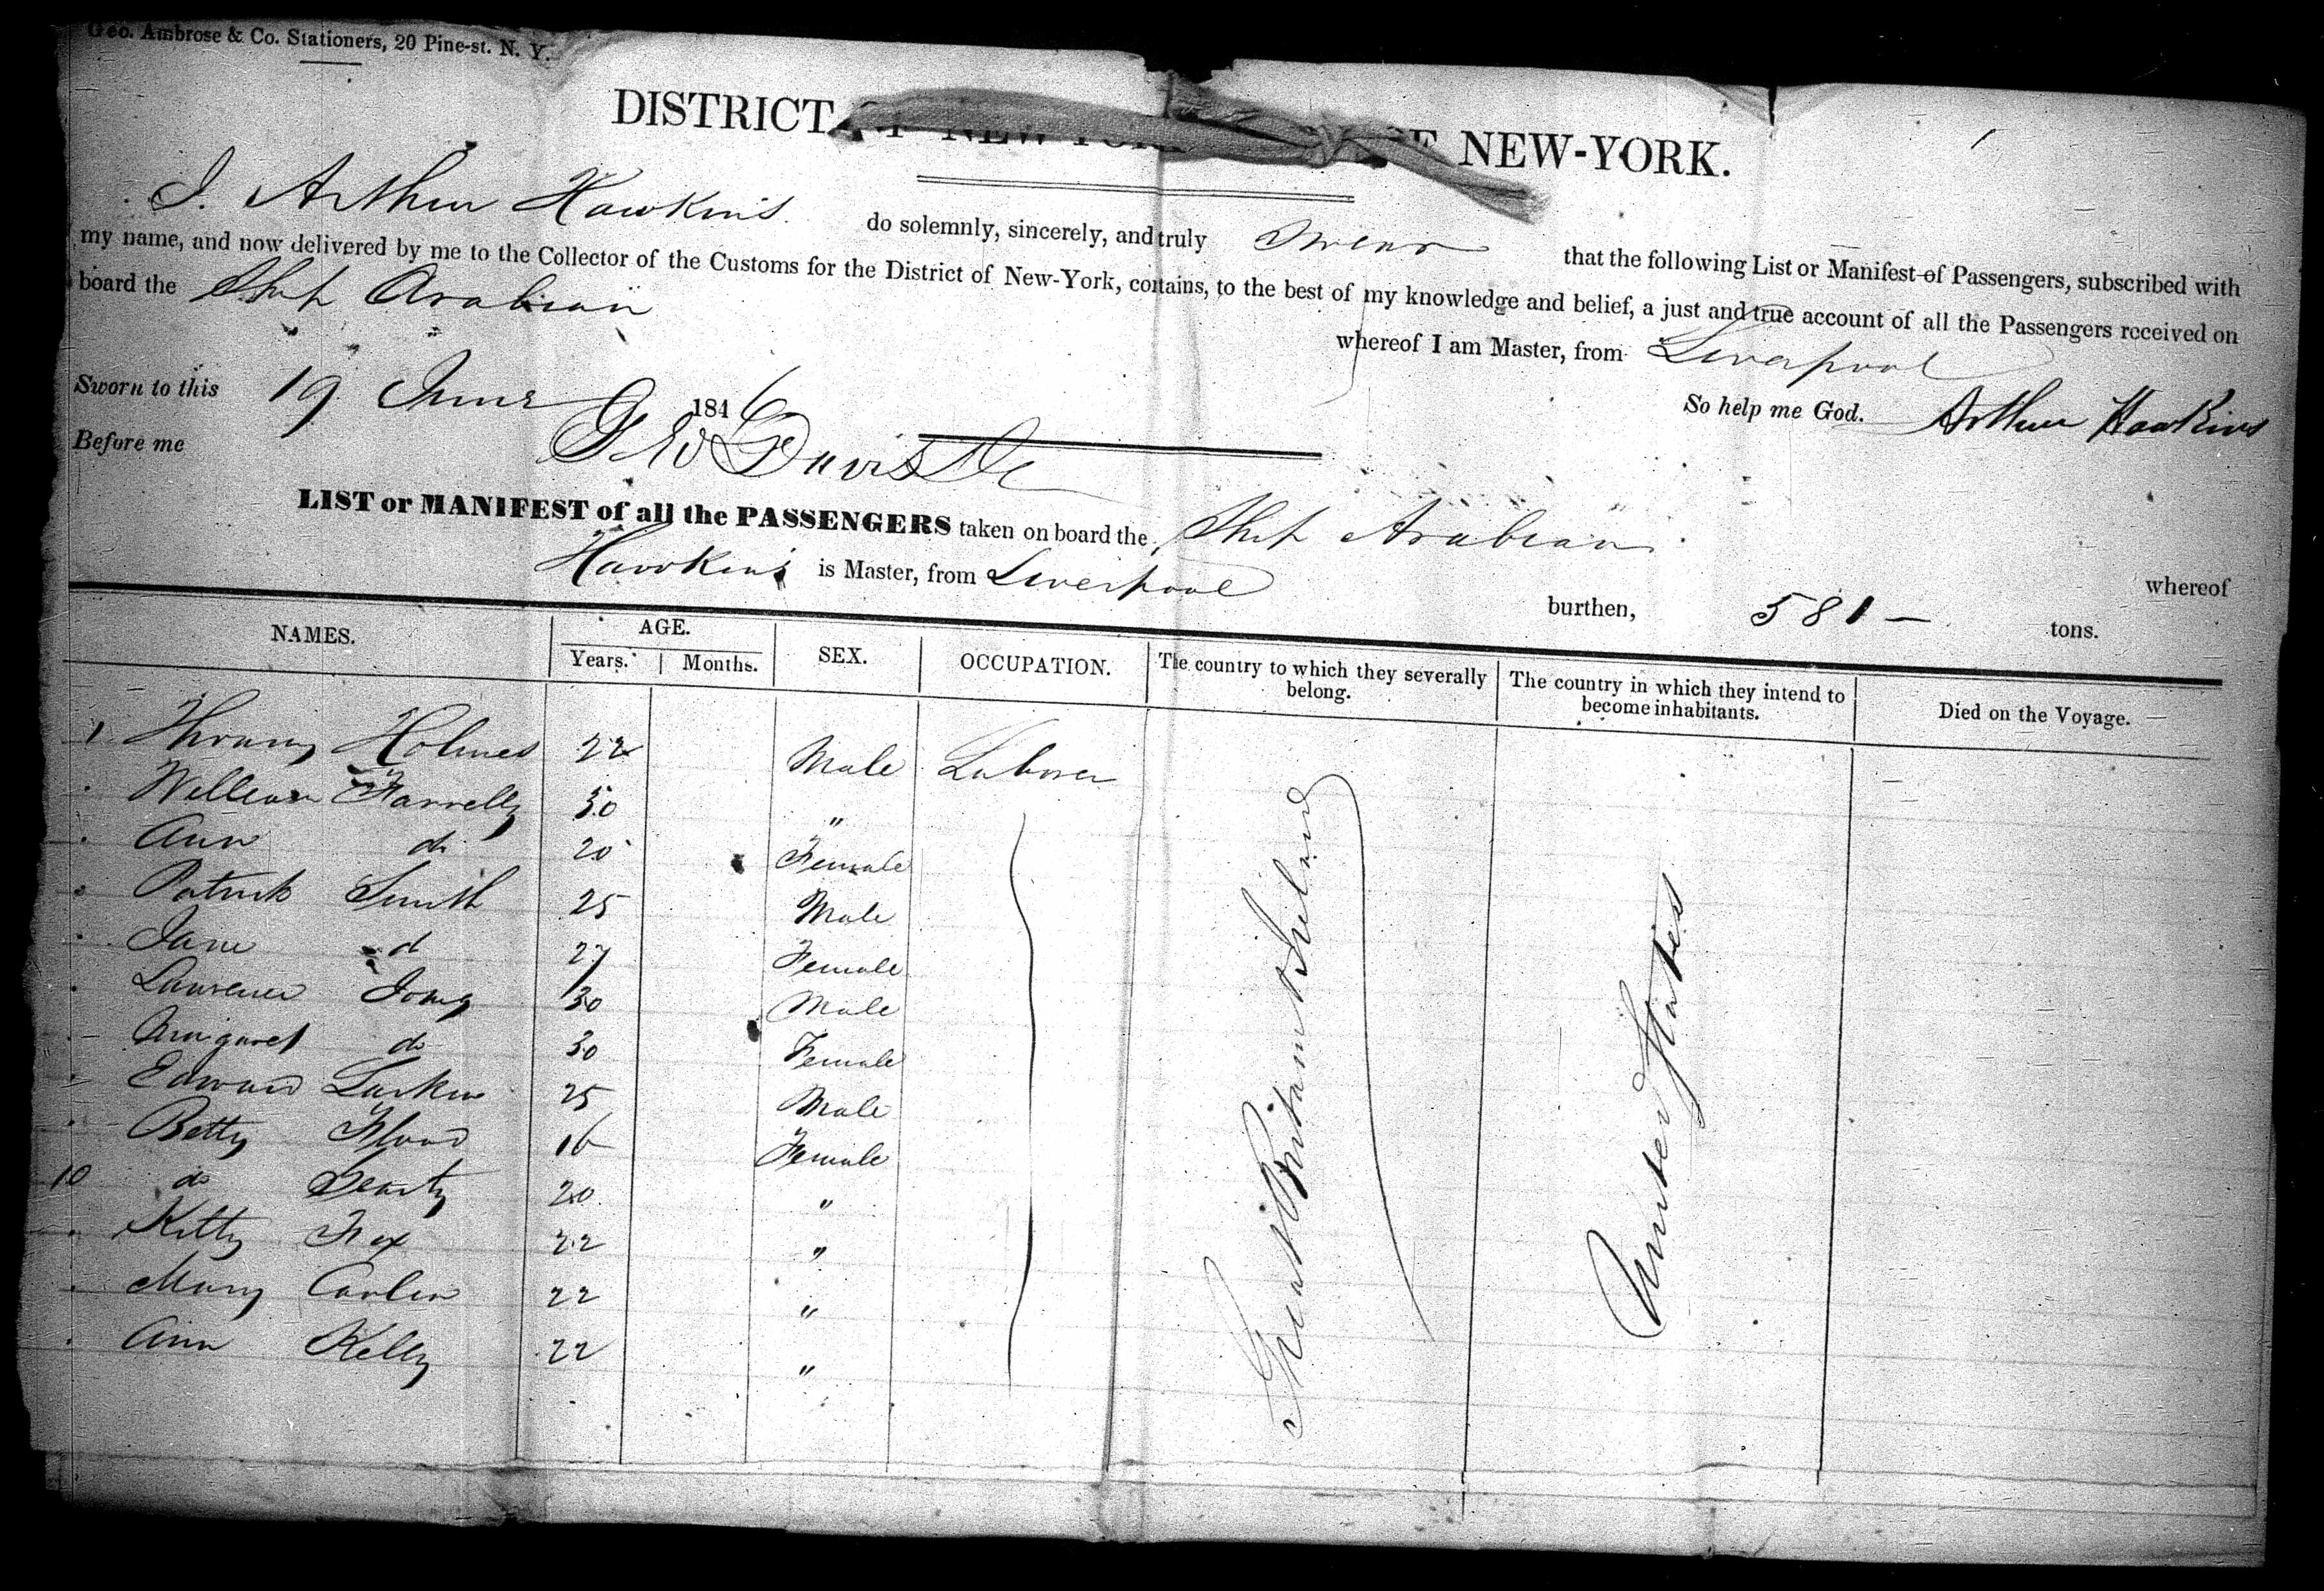 Geo. Ambrose & Co. Stationers, 20 Pine-st. N. Y.
DISTRICT OF NEW-YORK NEW-YORK.
I. Arthur Hawkins do solemnly, sincerely, and truly swear that the following List or Manifest of Passengers, subscribed with
my name, and now delivered by me to the Collector of the Customs for the District of New-York, contains, to the best of my knowledge and belief, a just and true account of all the Passengers received on
board the Ship Arabian whereof I am Master, from Liverpool
Sworn to this 19 June 1846 So help me God. Arthur Hawkins
Before me Davis
LIST or MANIFEST of all the PASSENGERS taken on board the Ship Arabian whereof
Hawkins is Master, from Liverpool burthen, 581 — tons.
NAMES. AGE. SEX. OCCUPATION. The country to which they severally belong. The country in which they intend to become inhabitants. Died on the Voyage.
Years. Months.
1 Holmes 22 Male Laborer
William Farrelly 30 "
Ann do 20 Female
Patrick Smith 25 Male
Jane do 27 Female
Lawrence 30 Male
Margaret do 30 Female
Edward Larkin 25 Male
Betty Flood 16 Female
10 do 20 "
Kitty Fox 22 "
Mary Carlin 22 "
Ann Kelly 22 "
Great Britain & Ireland
United States